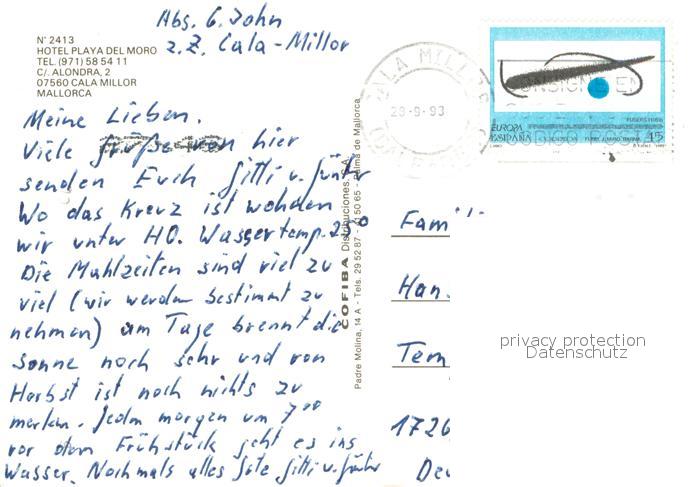 Abs. G. John
z.Z. Cala-Millor
N° 2413
HOTEL PLAYA DEL MORO
TEL. (971) 58 54 11
C/. ALONDRA, 2
07560 CALA MILLOR
MALLORCA
Meine Lieben.
Viele Grüße von hier
senden Euch Gitti u. Günter
Wo das Kreuz ist wohnen
wir unter HO. Wassertemp. 25°
Die Mahlzeiten sind viel zu
viel (wir werden bestimmt zu
nehmen) am Tage brennt die
Sonne noch sehr und von
Herbst ist noch nichts zu
merken. Jeden morgen um 7⁰⁰
vor dem Frühstück geht es ins
Wasser. Nochmals alles Gute Gitti u. Günter
COFIBA Distribuciones, S.A.
Padre Molina, 14 A - Tels. 29 52 87 - 41 50 65 - Palma de Mallorca
CALA MILLOR
28-9-93
EUROPA
ESPAÑA
45
Fam
Han
Tem
1726
De
privacy protection
Datenschutz